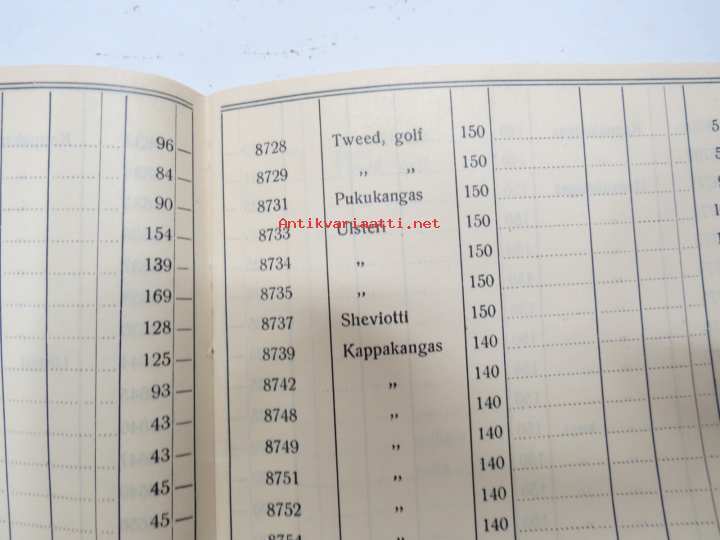 96 —
84 —
90 —
154 —
139 —
169 —
128 —
125 —
93 —
43 —
43 —
45 —
45 —
8728 Tweed, golf 150
8729 „ „ 150
8731 Pukukangas 150
8733 Ulsteri 150
8734 „ 150
8735 „ 150
8737 Sheviotti 150
8739 Kappakangas 140
8742 „ 140
8748 „ 140
8749 „ 140
8751 „ 140
8752 „ 140
8754 „ 140
Antikvariaatti.net